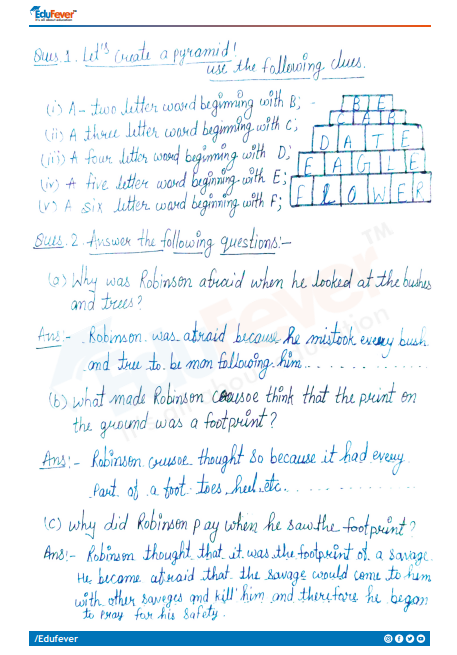 EduFever™
It's all about education
Ques. 1. Let's create a pyramid!
use the following clues.
(i) A - two letter word beginning with B; -
B E
(ii) A three letter word beginning with C;
C A B
(iii) A four letter word beginning with D;
D A T E
(iv) A five letter word beginning with E;
E A G L E
(v) A six letter word beginning with F;
F L O W E R
Ques. 2. Answer the following questions:-
(a) Why was Robinson afraid when he looked at the bushes
and trees?
Ans:- Robinson was afraid because he mistook every bush
and tree to be man following him.............
(b) What made Robinson Crusoe think that the print on
the ground was a footprint?
Ans:- Robinson crusoe thought so because it had every
part of a foot toes, heel, etc. ............
(c) why did Robinson pay when he saw the footprint?
Ans:- Robinson thought that it was the footprint of a savage.
He became afraid that the savage would come to him
with other saveges and kill him and therefore he began
to pray for his safety.
/Edufever